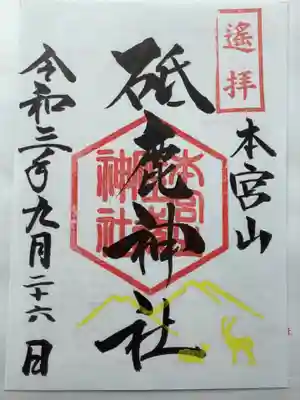 遙拝
本宮山
砥鹿神社
神社
令和三年九月二十六日